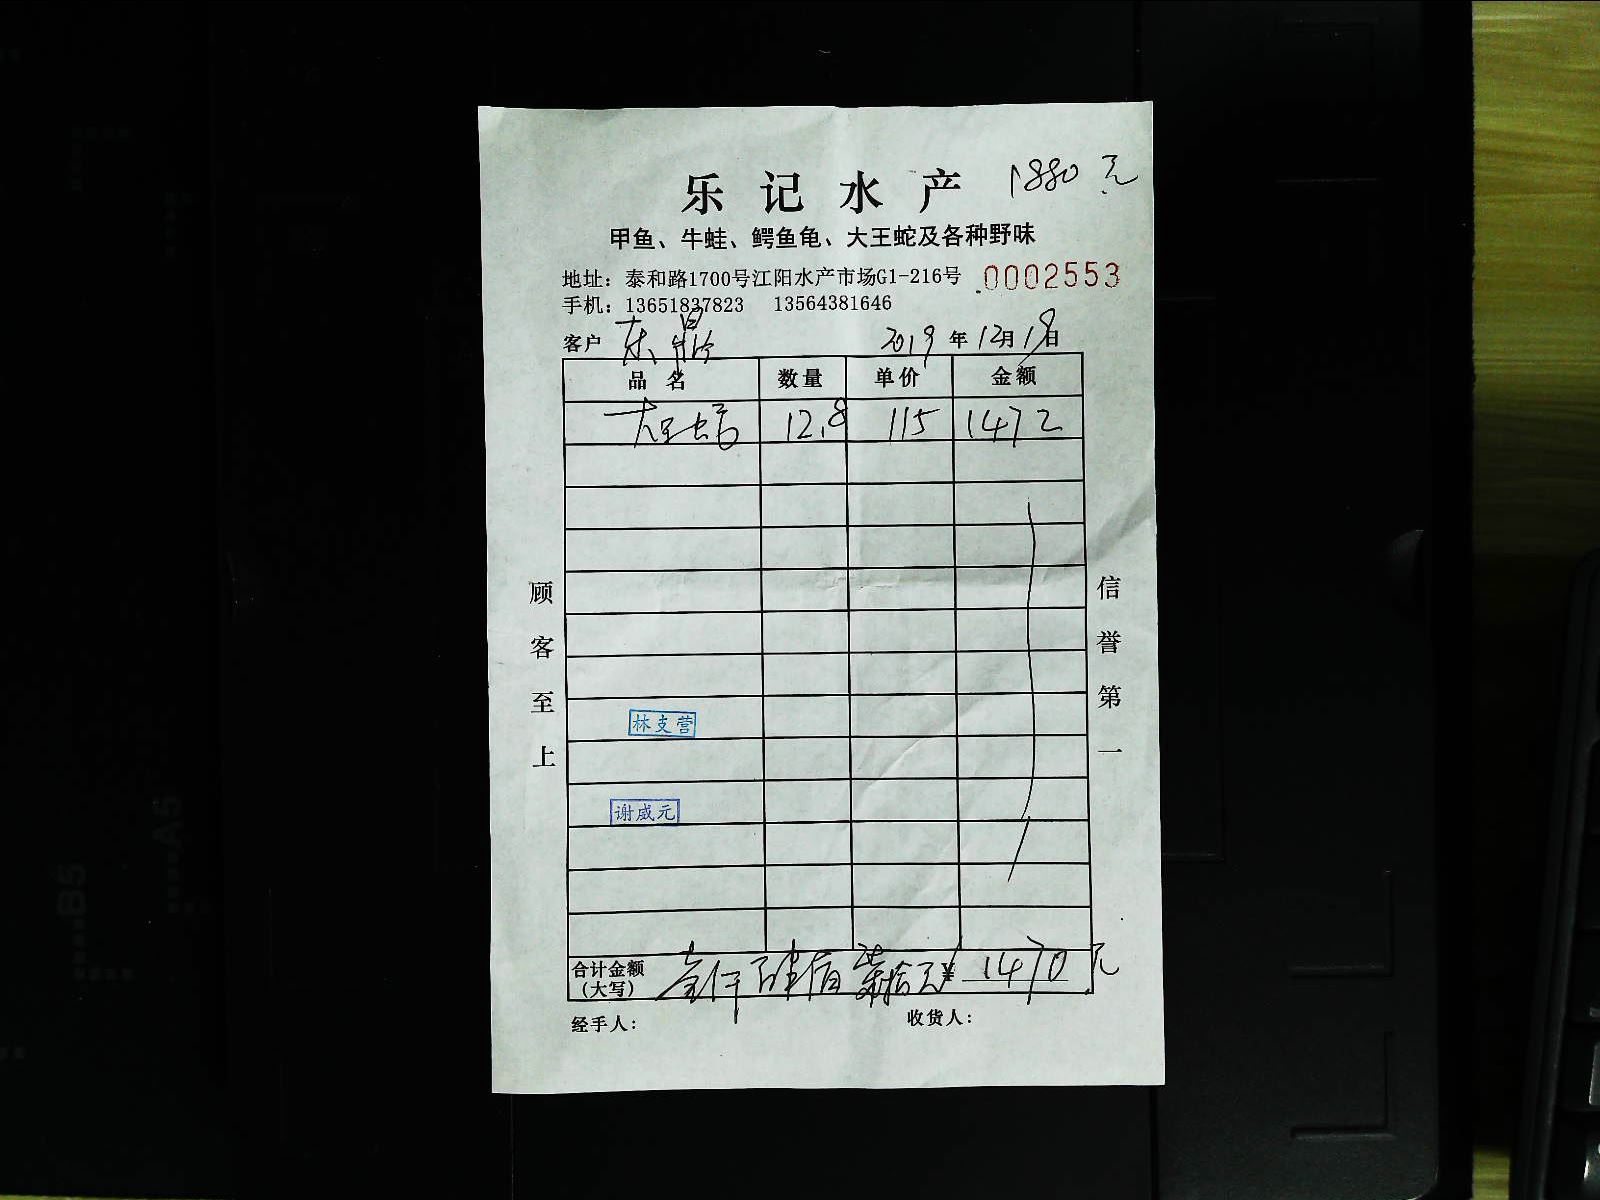 乐记水产
1880元
甲鱼、牛蛙、鳄鱼龟、大王蛇及各种野味
地址：泰和路1700号江阳水产市场G1-216号
0002553
手机：13651837823 13564381646
客户 东晶
2019年12月18日
品名 数量 单价 金额
大王蛇 12.8 115 1472
顾客至上
信誉第一
林支营
谢威元
合计金额（大写） 壹仟肆佰柒拾元 ¥ 1470元
经手人：
收货人：
B5
A5